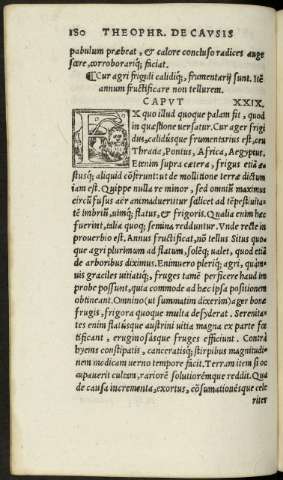 180 THEOPHR. DE CAVSIS
pabulum præbeat, & calore concluso radices auge
scere, corroborariq; faciat.
¶Cur agri frigidi calidiq;, frumentarij sunt. Itē
annum fructificare non tellurem.
CAPVT XXIX.
EX quo illud quoque palam fit, quod
in quæstione uersatur. Cur ager frigi
dus, calidúsque frumentarius est, ceu
Thracia, Pontus, Africa, Aegyptus.
Etenim supra cætera, frigus etiā æ-
stusq; aliquid cōferunt: ut de mollitione terræ dictum
iam est. Quippe nulla re minor, sed omniū maximus
circūfusus aër animaduertitur scilicet ad tēpestiuita-
tē imbriū, uimq; flatus, & frigoris. Qualia enim hæc
fuerint, talia quoq; semina redduntur. Vnde recte in
prouerbio est. Annus fructificat, nō tellus Situs quo-
que agri plurimum ad flatum, solēq; ualet, quod etiā
de arboribus diximus. Enimuero plerīq; agri, quàm-
uis graciles uitiatiq;, fruges tamē perficere haud im
probe possunt, quia commode ad hæc ipsa positionem
obtineant. Omnino (ut summatim dixerim) ager bonæ
frugis, frigora quoque multa desyderat. Serenita-
tes enim flatúsque austrini uitia magna ex parte fœ
tificant, eruginosásque fruges efficiunt. Contrà
hyems constipatis, cancerátisq; stirpibus magnitudi-
nem modicam uerno tempore facit. Terram item si oc
cupauerit cultam, rariorē solutiorémque reddit. Qua
de causa incrementa, exortus, cōsumationésque cele
riter